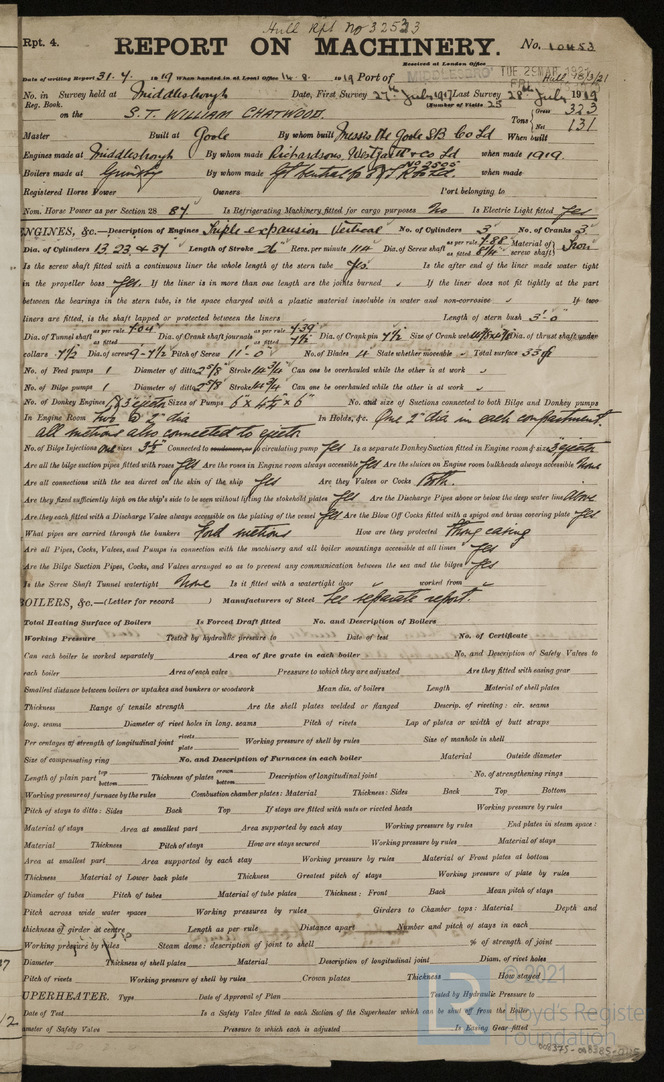 Hull Rpt No 32523
Rpt. 4. REPORT ON MACHINERY. No. 10453
Received at London Office
Date of writing Report 31.7. 1919 When handed in at Local Office 14.8. 1919 Port of MIDDLESBRO' TUE 29 MAR 1921 FRI Hull 18/3/21
No. in Survey held at Middlesbrough Date, First Survey 27th July 1917 Last Survey 28th July 1919
Reg. Book. (Number of Visits 25
on the S.T. WILLIAM CHATWOOD. Tons { Gross 323 Net 131
Master Built at Goole By whom built Messrs The Goole SB Co Ld When built
Engines made at Middlesbrough By whom made Richardsons, Westgarth & Co Ld when made 1919.
Boilers made at Grimsby By whom made when made
Registered Horse Power Owners Port belonging to
Nom. Horse Power as per Section 28 84 Is Refrigerating Machinery fitted for cargo purposes No Is Electric Light fitted Yes
ENGINES, &c.—Description of Engines Triple expansion Vertical No. of Cylinders 3 No. of Cranks 3
Dia. of Cylinders 13, 23, & 37 Length of Stroke 26 Revs. per minute 114 Dia. of Screw shaft as per rule 7.88 as fitted 8 1/4" Material of screw shaft Iron
Is the screw shaft fitted with a continuous liner the whole length of the stern tube Yes. Is the after end of the liner made water tight
in the propeller boss Yes. If the liner is in more than one length are the joints burned If the liner does not fit tightly at the part
between the bearings in the stern tube, is the space charged with a plastic material insoluble in water and non-corrosive If two
liners are fitted, is the shaft lapped or protected between the liners Length of stern bush 3'-0"
Dia. of Tunnel shaft as per rule 7.04 as fitted Dia. of Crank shaft journals as per rule 7.39 as fitted 7 1/2 Dia. of Crank pin 7 1/2 Size of Crank webs Dia. of thrust shaft under
collars 7 1/2 Dia. of screw 9-7 1/2 Pitch of Screw 11'-0" No. of Blades 4 State whether moveable Total surface 33
No. of Feed pumps 1 Diameter of ditto 2 5/8 Stroke 14 3/4 Can one be overhauled while the other is at work
No. of Bilge pumps 1 Diameter of ditto 2 5/8 Stroke 14 3/4 Can one be overhauled while the other is at work
No. of Donkey Engines Sizes of Pumps 6" x 4 1/4" x 6" No. and size of Suctions connected to both Bilge and Donkey pumps
In Engine Room Two @ 2" dia In Holds, &c. One 2" dia in each compartment.
all suctions also connected to ejector
No. of Bilge Injections one sizes 3 1/2 Connected to condenser, or to circulating pump Yes Is a separate Donkey Suction fitted in Engine room & size 3" ejector
Are all the bilge suction pipes fitted with roses Yes Are the roses in Engine room always accessible Yes Are the sluices on Engine room bulkheads always accessible None
Are all connections with the sea direct on the skin of the ship Yes Are they Valves or Cocks Both.
Are they fixed sufficiently high on the ship's side to be seen without lifting the stokehold plates Yes Are the Discharge Pipes above or below the deep water line Above
Are they each fitted with a Discharge Valve always accessible on the plating of the vessel Yes Are the Blow Off Cocks fitted with a spigot and brass covering plate Yes
What pipes are carried through the bunkers Ford suctions How are they protected Strong casing
Are all Pipes, Cocks, Valves, and Pumps in connection with the machinery and all boiler mountings accessible at all times Yes
Are the Bilge Suction Pipes, Cocks, and Valves arranged so as to prevent any communication between the sea and the bilges Yes
Is the Screw Shaft Tunnel watertight None Is it fitted with a watertight door worked from
BOILERS, &c.—(Letter for record ) Manufacturers of Steel See separate report.
Total Heating Surface of Boilers Is Forced Draft fitted No. and Description of Boilers
Working Pressure Tested by hydraulic pressure to Date of test No. of Certificate
Can each boiler be worked separately Area of fire grate in each boiler No. and Description of Safety Valves to
each boiler Area of each valve Pressure to which they are adjusted Are they fitted with easing gear
Smallest distance between boilers or uptakes and bunkers or woodwork Mean dia. of boilers Length Material of shell plates
Thickness Range of tensile strength Are the shell plates welded or flanged Descrip. of riveting: cir. seams
long. seams Diameter of rivet holes in long. seams Pitch of rivets Lap of plates or width of butt straps
Per centages of strength of longitudinal joint rivets plate Working pressure of shell by rules Size of manhole in shell
Size of compensating ring No. and Description of Furnaces in each boiler Material Outside diameter
Length of plain part top bottom Thickness of plates crown bottom Description of longitudinal joint No. of strengthening rings
Working pressure of furnace by the rules Combustion chamber plates: Material Thickness: Sides Back Top Bottom
Pitch of stays to ditto: Sides Back Top If stays are fitted with nuts or riveted heads Working pressure by rules
Material of stays Area at smallest part Area supported by each stay Working pressure by rules End plates in steam space:
Material Thickness Pitch of stays How are stays secured Working pressure by rules Material of stays
Area at smallest part Area supported by each stay Working pressure by rules Material of Front plates at bottom
Thickness Material of Lower back plate Thickness Greatest pitch of stays Working pressure of plate by rules
Diameter of tubes Pitch of tubes Material of tube plates Thickness: Front Back Mean pitch of stays
Pitch across wide water spaces Working pressures by rules Girders to Chamber tops: Material Depth and
thickness of girder at centre Length as per rule Distance apart Number and pitch of stays in each
Working pressure by rules Steam dome: description of joint to shell % of strength of joint
Diameter Thickness of shell plates Material Description of longitudinal joint Diam. of rivet holes
Pitch of rivets Working pressure of shell by rules Crown plates Thickness How stayed
UPERHEATER. Type Date of Approval of Plan Tested by Hydraulic Pressure to
Date of Test Is a Safety Valve fitted to each Section of the Superheater which can be shut off from the Boiler
ameter of Safety Valve Pressure to which each is adjusted Is Easing Gear fitted
© 2021
Lloyd's Register
Foundation
008375-008385-0215